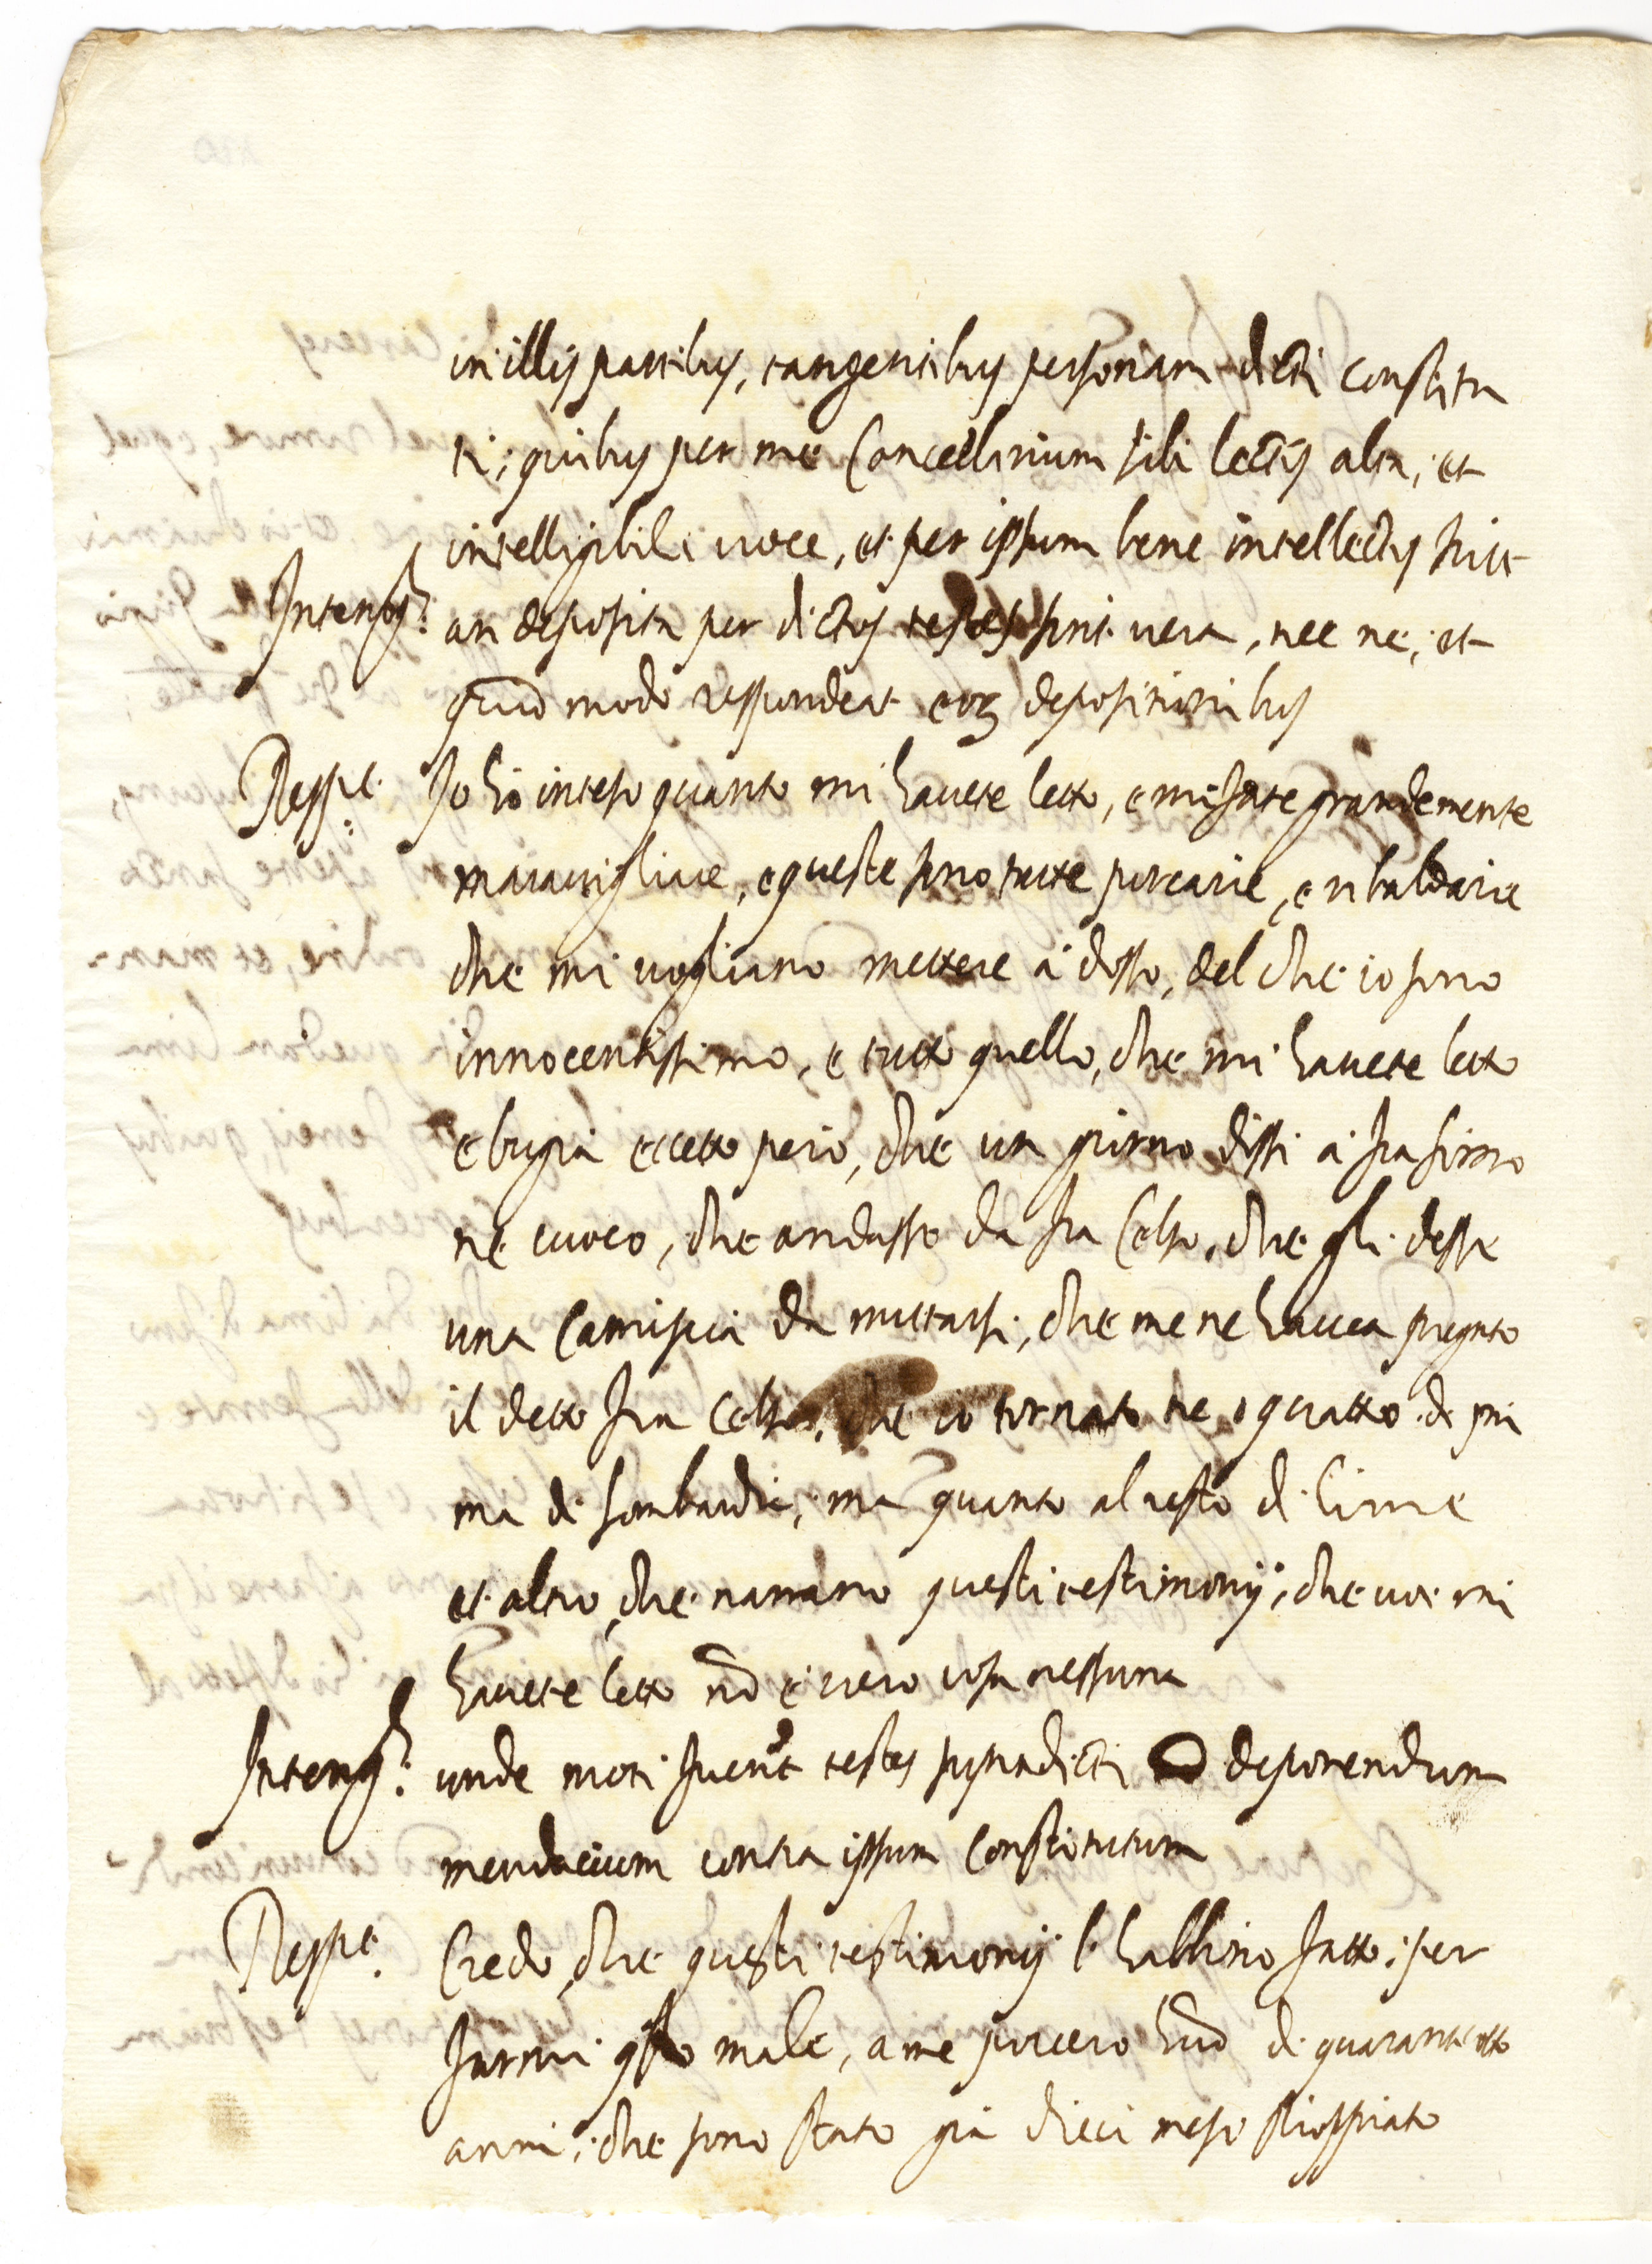 in illis partibus, tangentibus personam dicti constitu
ti, quibus per me Cancellarium sibi lectis alta, et
intelligibili voce, et per ipsum bene intellectis fuit
Interrog.s an deposita per dictos testes sint vera, nec ne, et
quomodo respondeat eor depositionibus
Resp.t Io hò inteso quanto mi havete letto, e mi fate grandemente
maravigliare, e queste sono tutte porcarie, e ribaldarie
che mi vogliano mettere à dosso, del che io sono
innocentissimo, e tutto quello, che mi havete letto
è bugia eccetto però, che un giorno dissi à fra Simo
ne cuoco, che andasse da fra Celso, che gli desse
una Camiscia da muttarsi, che me ne havea pregato
il detto fra Celso, che io tornato tre o quatto dì pri
ma di Lombardia, ma quanto al resto di lime
et altro, che narrano questi testimonij, che voi mi
havete letto nõ è vero cosa nessuna
Interrog.s unde moti fuerũt testes supradicti ad deponendum
mendacium contra ipsum Constitutum
Resp.t Credo, che questi testimonij l'habbino fatto per
farmi qsto male, a me povero di quarantaotto
anni, che sono stato già dieci mesi stroppiato